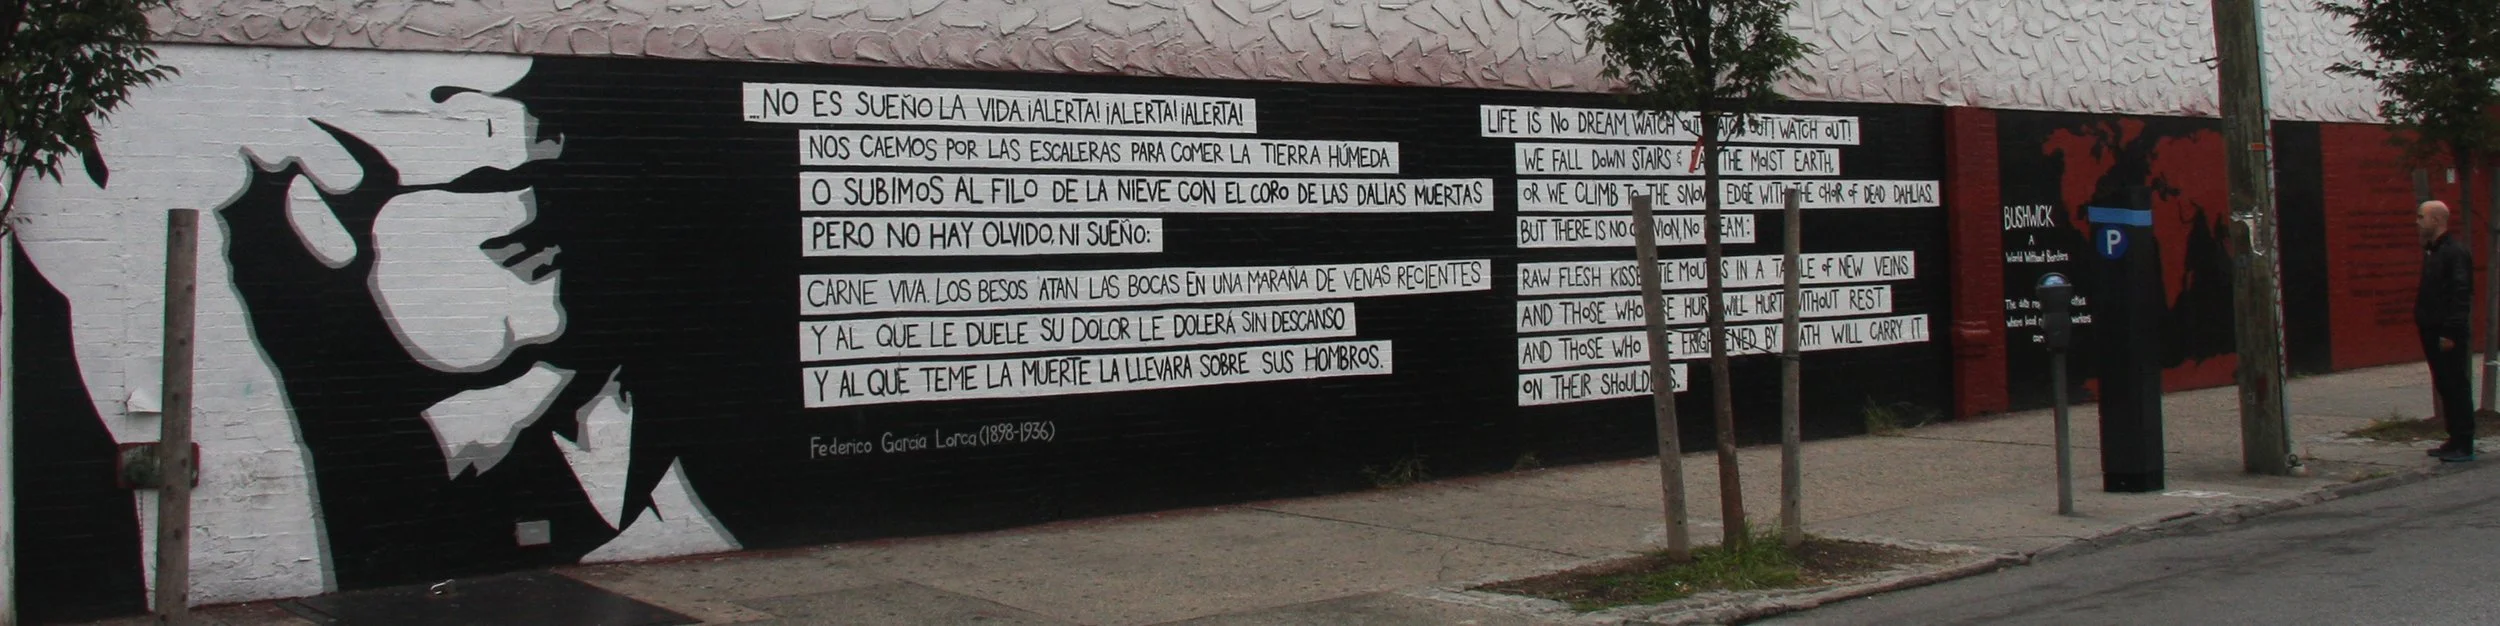 ...NO ES SUEÑO LA VIDA. ¡ALERTA! ¡ALERTA! ¡ALERTA!
NOS CAEMOS POR LAS ESCALERAS PARA COMER LA TIERRA HÚMEDA
O SUBIMOS AL FILO DE LA NIEVE CON EL CORO DE LAS DALIAS MUERTAS
PERO NO HAY OLVIDO, NI SUEÑO:
CARNE VIVA. LOS BESOS ATAN LAS BOCAS EN UNA MARAÑA DE VENAS RECIENTES
Y AL QUE LE DUELE SU DOLOR LE DOLERÁ SIN DESCANSO
Y AL QUE TEME LA MUERTE LA LLEVARA SOBRE SUS HOMBROS.
Federico García Lorca (1898-1936)
LIFE IS NO DREAM. WATCH OUT! WATCH OUT! WATCH OUT!
WE FALL DOWN STAIRS & THE MOIST EARTH,
OR WE CLIMB TO THE SNOW EDGE WITH THE CHOIR OF DEAD DAHLIAS.
BUT THERE IS NO NO DREAM:
RAW FLESH. KISSES TIE MOUTHS IN A TANGLE OF NEW VEINS
AND THOSE WHO ARE HURT WILL HURT WITHOUT REST
AND THOSE WHO ARE FRIGHTENED BY DEATH WILL CARRY IT
ON THEIR SHOULDERS.
BUSHWICK
A
World Without Borders
The
where
P